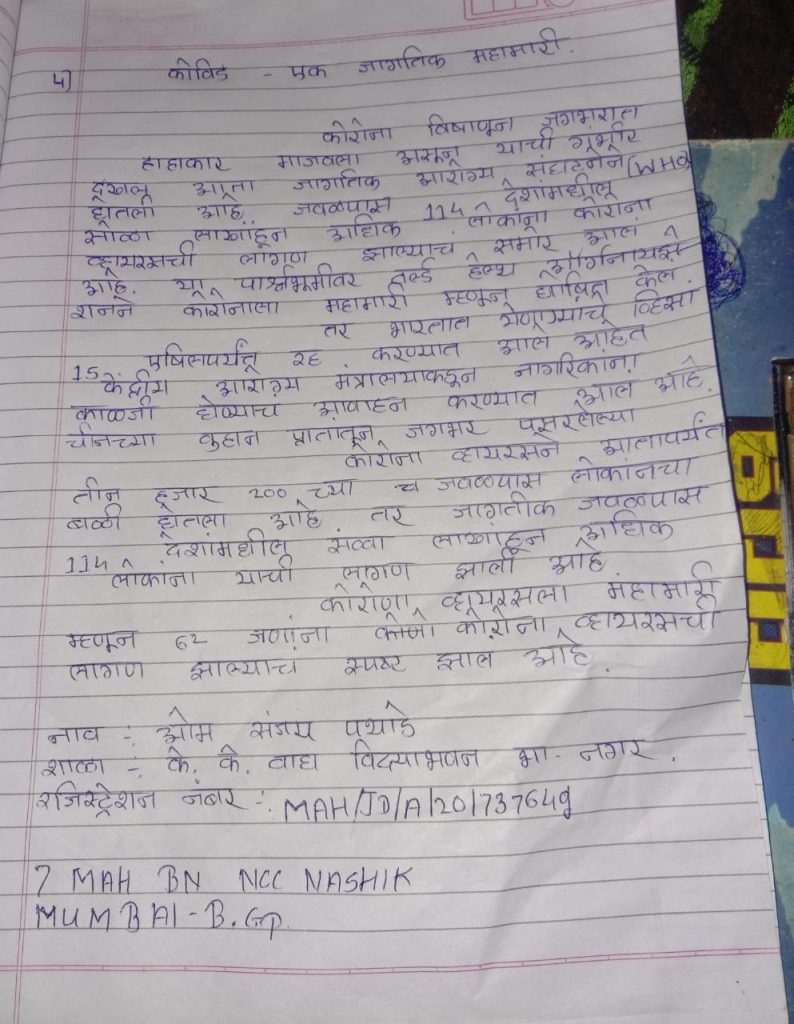 4) कोविड - एक जागतिक महामारी.
कोरोना विषाणून जगभरात
हाहाकार माजवला असून याची गंभीर
दखल आता जागतिक आरोग्य संघटनेने (WHO)
घेतली आहे. जवळपास 114 देशांमधील
साळा लाखांहून अधिक लोकांना कोरोना
व्हायरसची लागण झाल्याचं समोर आलं
आहे. या पार्श्वभूमीवर वर्ल्ड हेल्थ ऑर्गनायझे
शनने कोरोनाला महामारी म्हणून घोषित केलं
तर भारतात येणाऱ्यांचे व्हिसा
15 एप्रिलपर्यंत रद्द करण्यात आले आहेत
केंद्रीय आरोग्य मंत्रालयाकडून नागरिकांना
काळजी घेण्याचं आवाहन करण्यात आलं आहे.
चीनच्या वुहान प्रातांतून जगभर पसरलेल्या
कोरोना व्हायरसने आतापर्यंत
तीन हजार 200 च्या च जवळपास लोकांनचा
बळी घेतला आहे तर जागतीक जवळपास
114 देशांमधील सव्वा लाखांहून अधिक
लोकांना याची लागण झाली आहे.
कोरोणा व्हायरसला महामारी
म्हणून 62 जणांना कोरोना व्हायरसची
लागण झाल्याचं स्पष्ट झालं आहे.
नाव :- ओम संजय पथाडे
शाळा :- के. के. वाघ विद्याभवन भा. नगर.
रजिस्ट्रेशन नंबर :- MAH/JD/A/20/737649
7 MAH BN NCC NASHIK
MUMBAI - B. Gp.